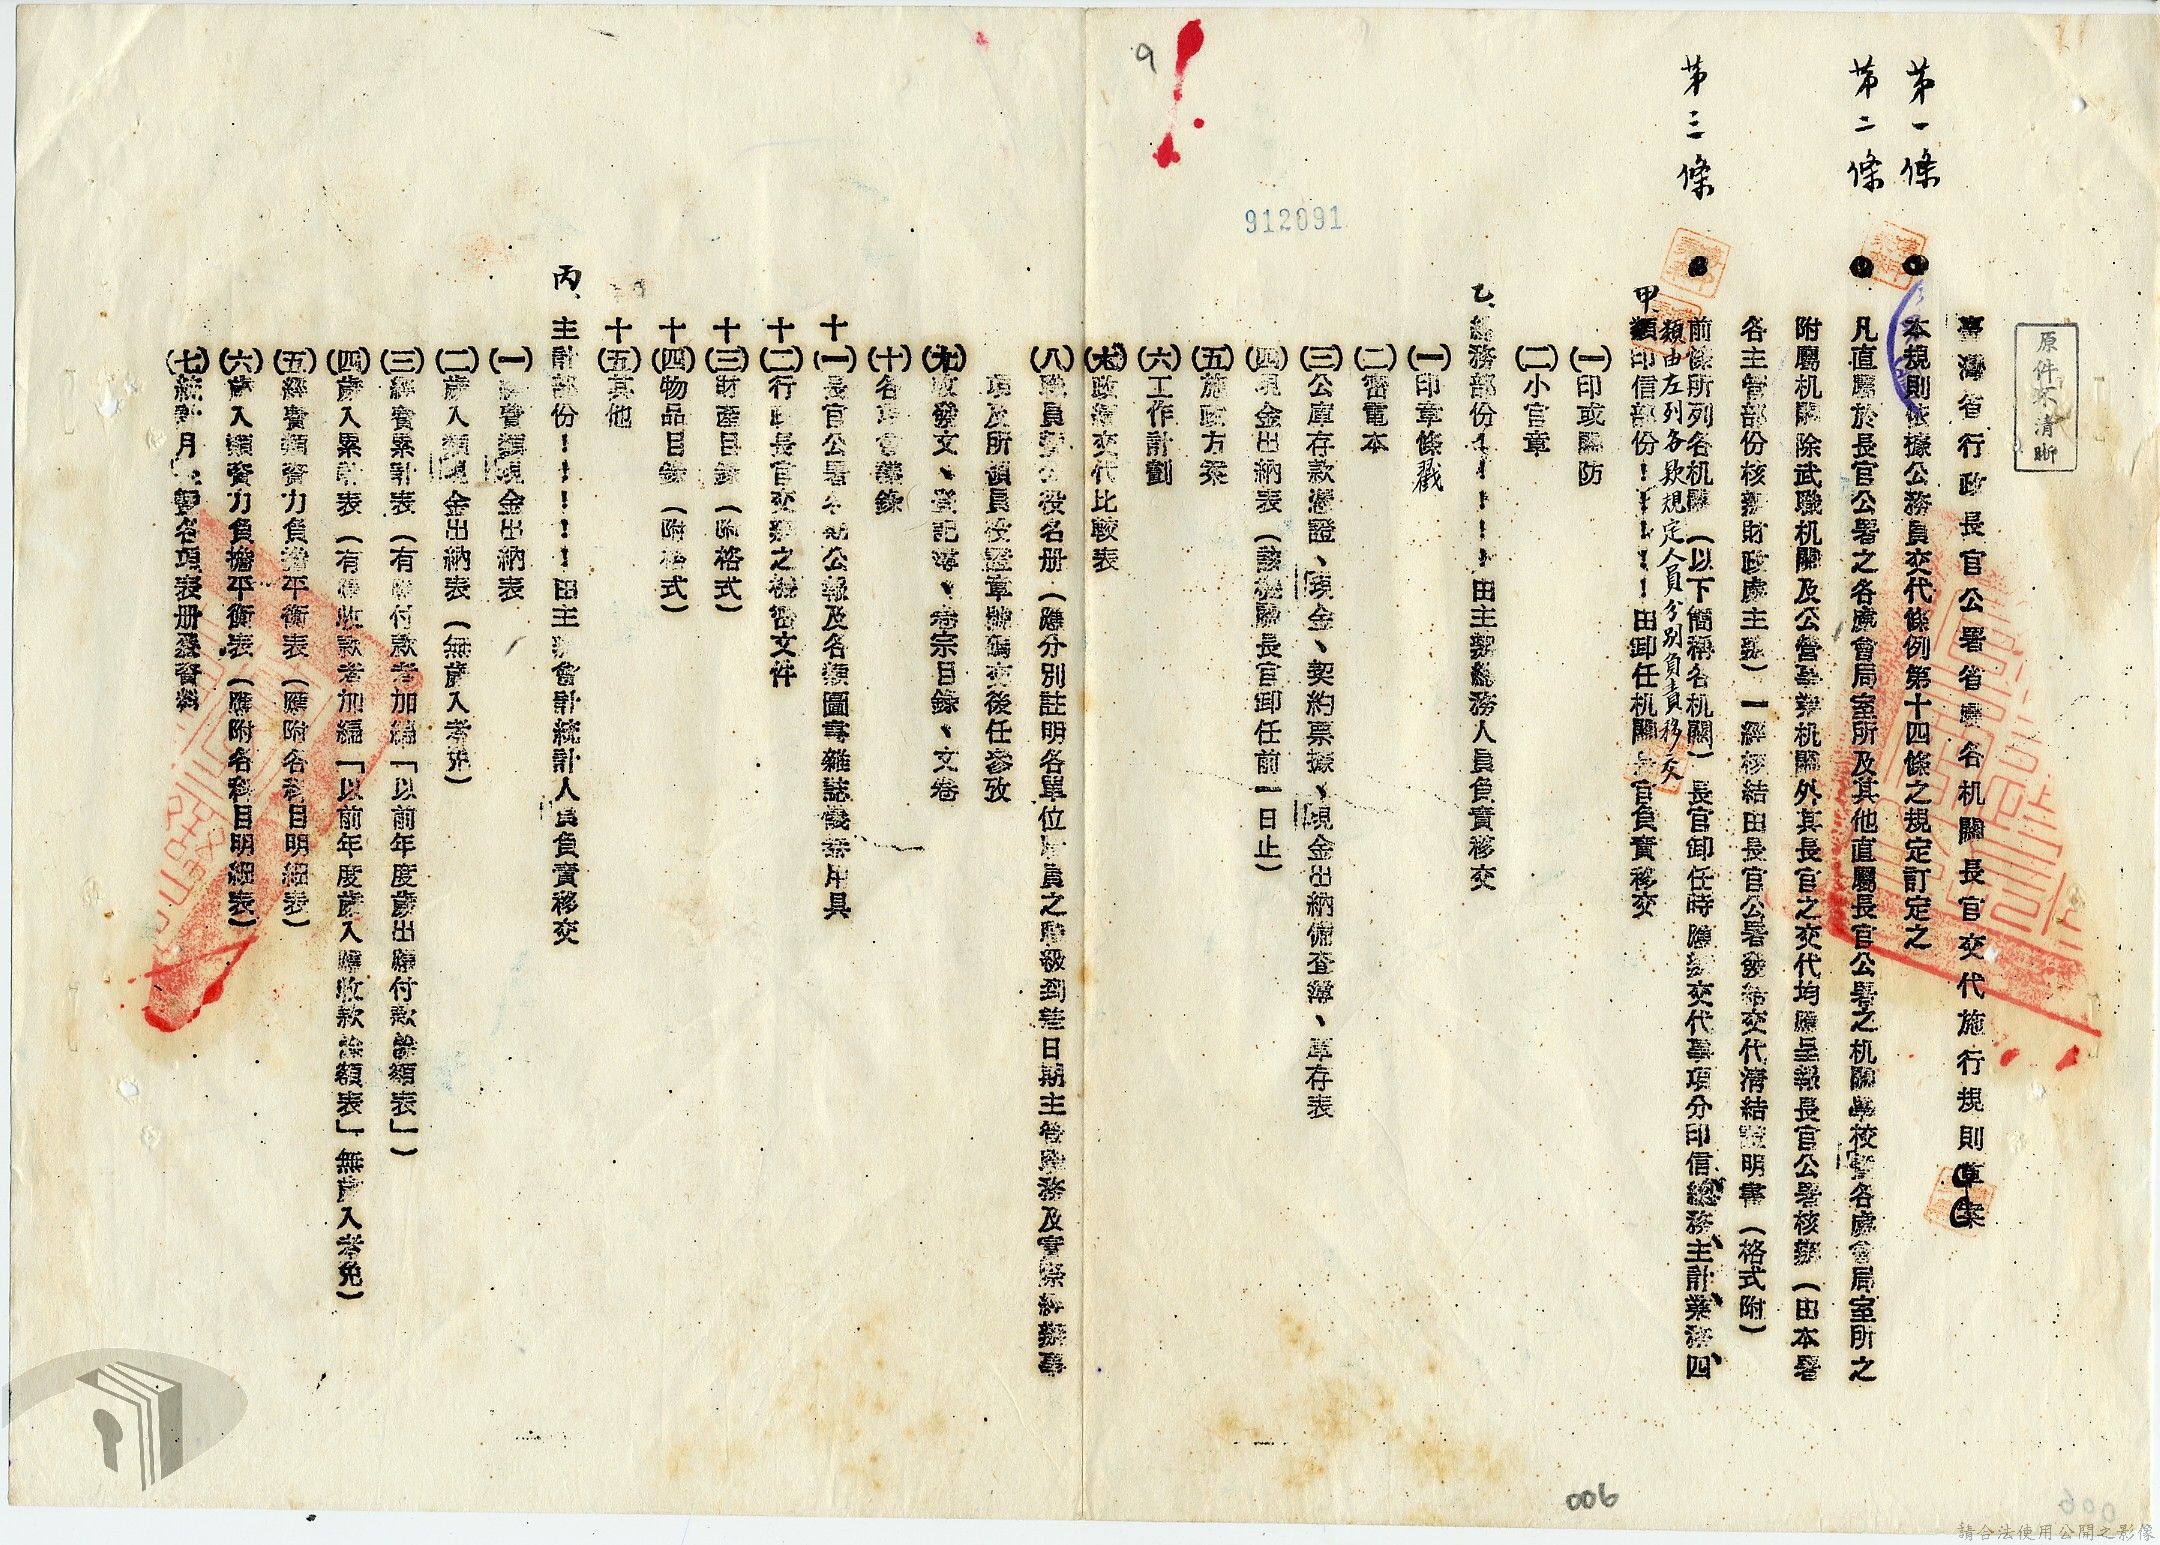 原件不清晰
臺灣省行政長官公署省屬各机關長官交代施行規則草案
第一條 本規則依據公務員交代條例第十四條之規定訂定之
第二條 凡直屬於長官公署之各處會局室所及其他直屬長官公署之机關學校暨各處會局室所之
附屬机關除武職机關及公營事業机關外其長官之交代均應呈報長官公署核辦(由本署
各主管部份核辦財政處主辦)一經核結由長官公署發給交代清結證明書(格式附)
第三條 前條所列各机關(以下簡稱各机關)長官卸任時應將交代事項分印信、總務、主計、業務四、
類由左列各款規定人員分別負責移交
甲、印信部份——————由卸任机關長官負責移交
(一)印或關防
(二)小官章
乙、總務部份——————由主辦總務人員負責移交
(一)印章條戳
(二)密電本
(三)公庫存款憑證、現金、契約票據、現金出納備查簿、庫存表
(四)現金出納表(該机關長官卸任前一日止)
(五)施政方案
(六)工作計劃
(七)政績交代比較表
(八)職員及公役名册.(應分別註明各單位職員之職級到差日期主管職務及實際經辦事
項及所領員役證章號碼交後任參攷
(九)收發文、登記簿、卷宗目錄、文卷
(十)各項會議錄
十(一)長官公署各期公報及各類圖書雜誌儀器用具
十(二)行政長官交辦之機密文件
十(三)財產目錄(附格式)
十(四)物品目錄(附格式)
十(五)其他
丙、主計部份——————由主辦會計統計人員負責移交
(一)經費類現金出納表
(二)歲入類現金出納表(無歲入者免)
(三)經費累計表(有應付款者加編「以前年度歲出應付款餘額表」)
(四)歲入累計表(有應收款者加編「以前年度歲入應收款餘額表」無歲入者免)
(五)經費類資力負擔平衡表(應附各科目明細表)
(六)歲入類資力負擔平衡表(應附各科目明細表)
(七)統計月報暨各項表册及資料
9
912091
006
請合法使用公開之影像